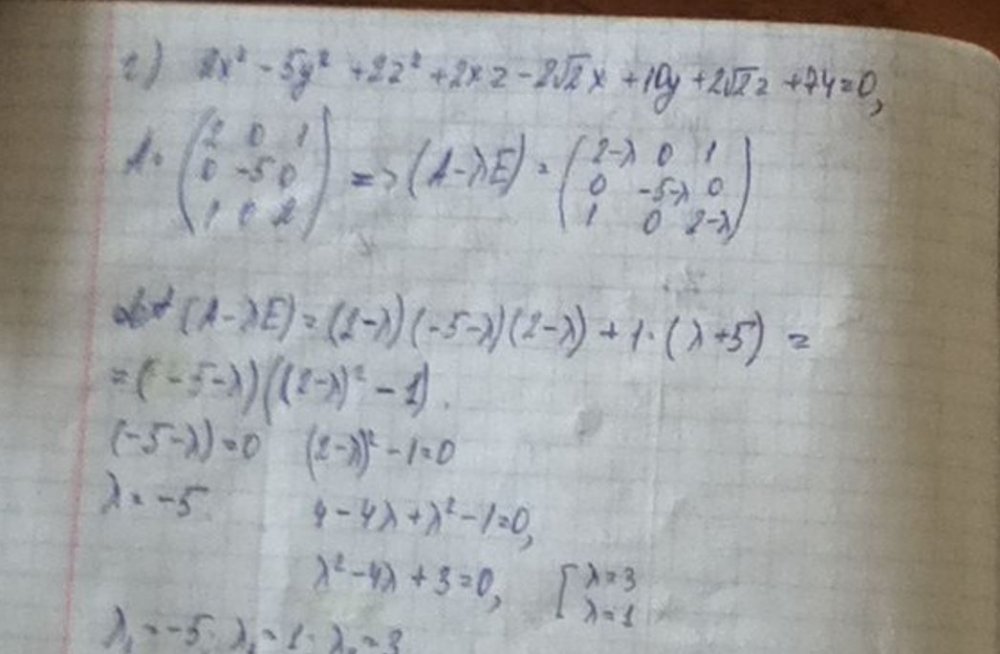 г) 2x² - 5y² + 2z² + 2xz - 2√2x + 10y + 2√2z + 74 = 0,
A = (2 0 1
0 -5 0
1 0 2) => (A-λE) = (2-λ 0 1
0 -5-λ 0
1 0 2-λ)
det (A-λE) = (2-λ)(-5-λ)(2-λ) + 1·(λ+5) =
= (-5-λ)((2-λ)² - 1).
(-5-λ)=0 (2-λ)² - 1=0
λ = -5 4 - 4λ + λ² - 1=0,
λ² - 4λ + 3 = 0, [λ=3
λ=1
λ₁ = -5; λ₂ = 1; λ₃ = 3